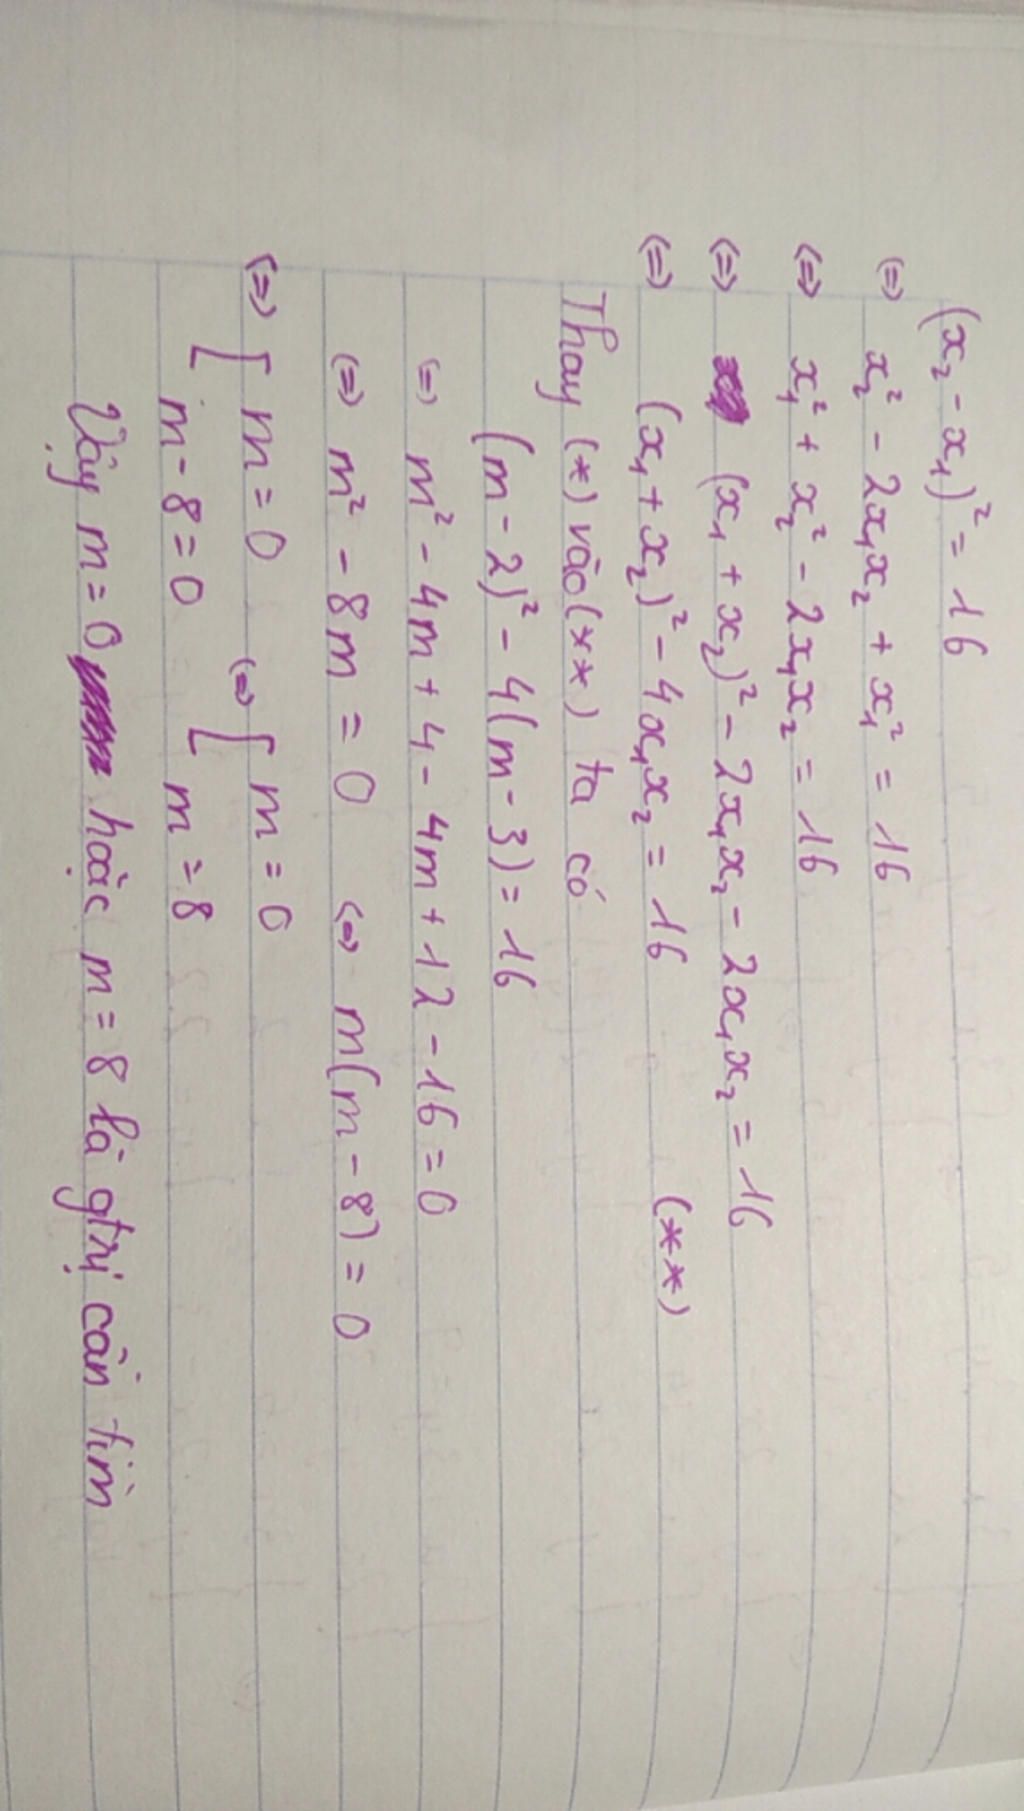 (x₂ - x₁)² = 16
(=) x₂² - 2x₁x₂ + x₁² = 16
(=) x₁² + x₂² - 2x₁x₂ = 16
(=) (x₁ + x₂)² - 2x₁x₂ - 2x₁x₂ = 16
(=) (x₁ + x₂)² - 4x₁x₂ = 16 (**)
Thay (*) vào (**) ta có
(m - 2)² - 4(m - 3) = 16
(=) m² - 4m + 4 - 4m + 12 - 16 = 0
(=) m² - 8m = 0 (=) m(m - 8) = 0
(=) [ m = 0 (=) [ m = 0
m - 8 = 0 m = 8
Vậy m = 0 hoặc m = 8 là gtrị cần tìm